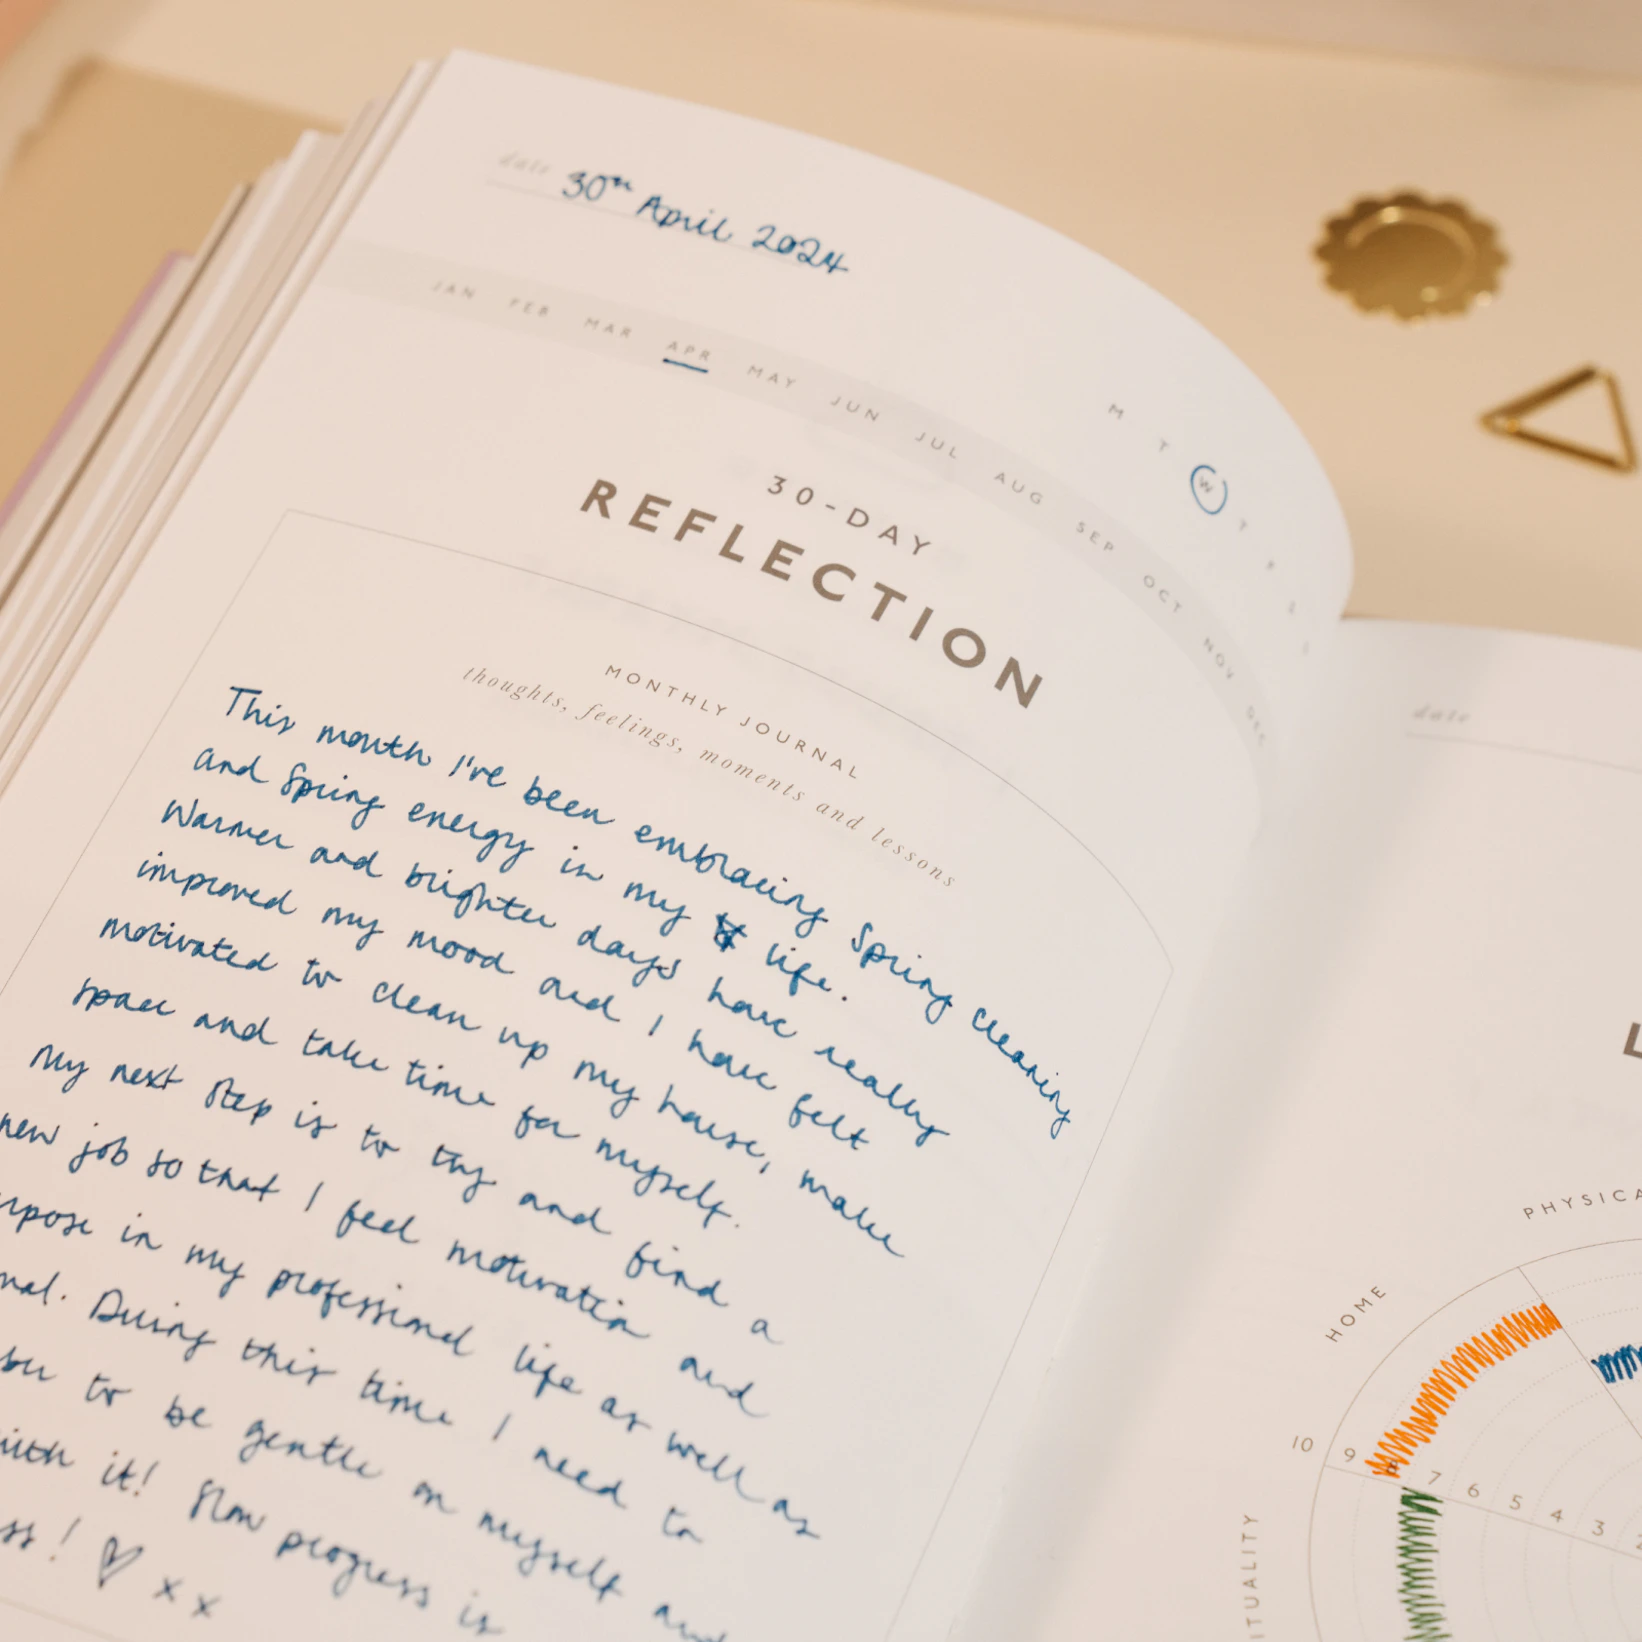 date 30th April 2024
JAN FEB MAR APR MAY JUN JUL AUG SEP OCT NOV DEC
M T W T F S S
30-DAY
REFLECTION
MONTHLY JOURNAL
thoughts, feelings, moments and lessons
This month I've been embracing Spring cleaning
and Spring energy in my life.
Warmer and brighter days have really
improved my mood and I have felt
motivated to clean up my house, make
space and take time for myself.
My next step is to try and find a
new job so that I feel motivation and
in my professional life as well as
During this time I need to
to be gentle on myself and
with it! Slow progress is
! xx
date
L
PHYSICA
HOME
10 9 8 7 6 5 4 3 2
ITUALITY